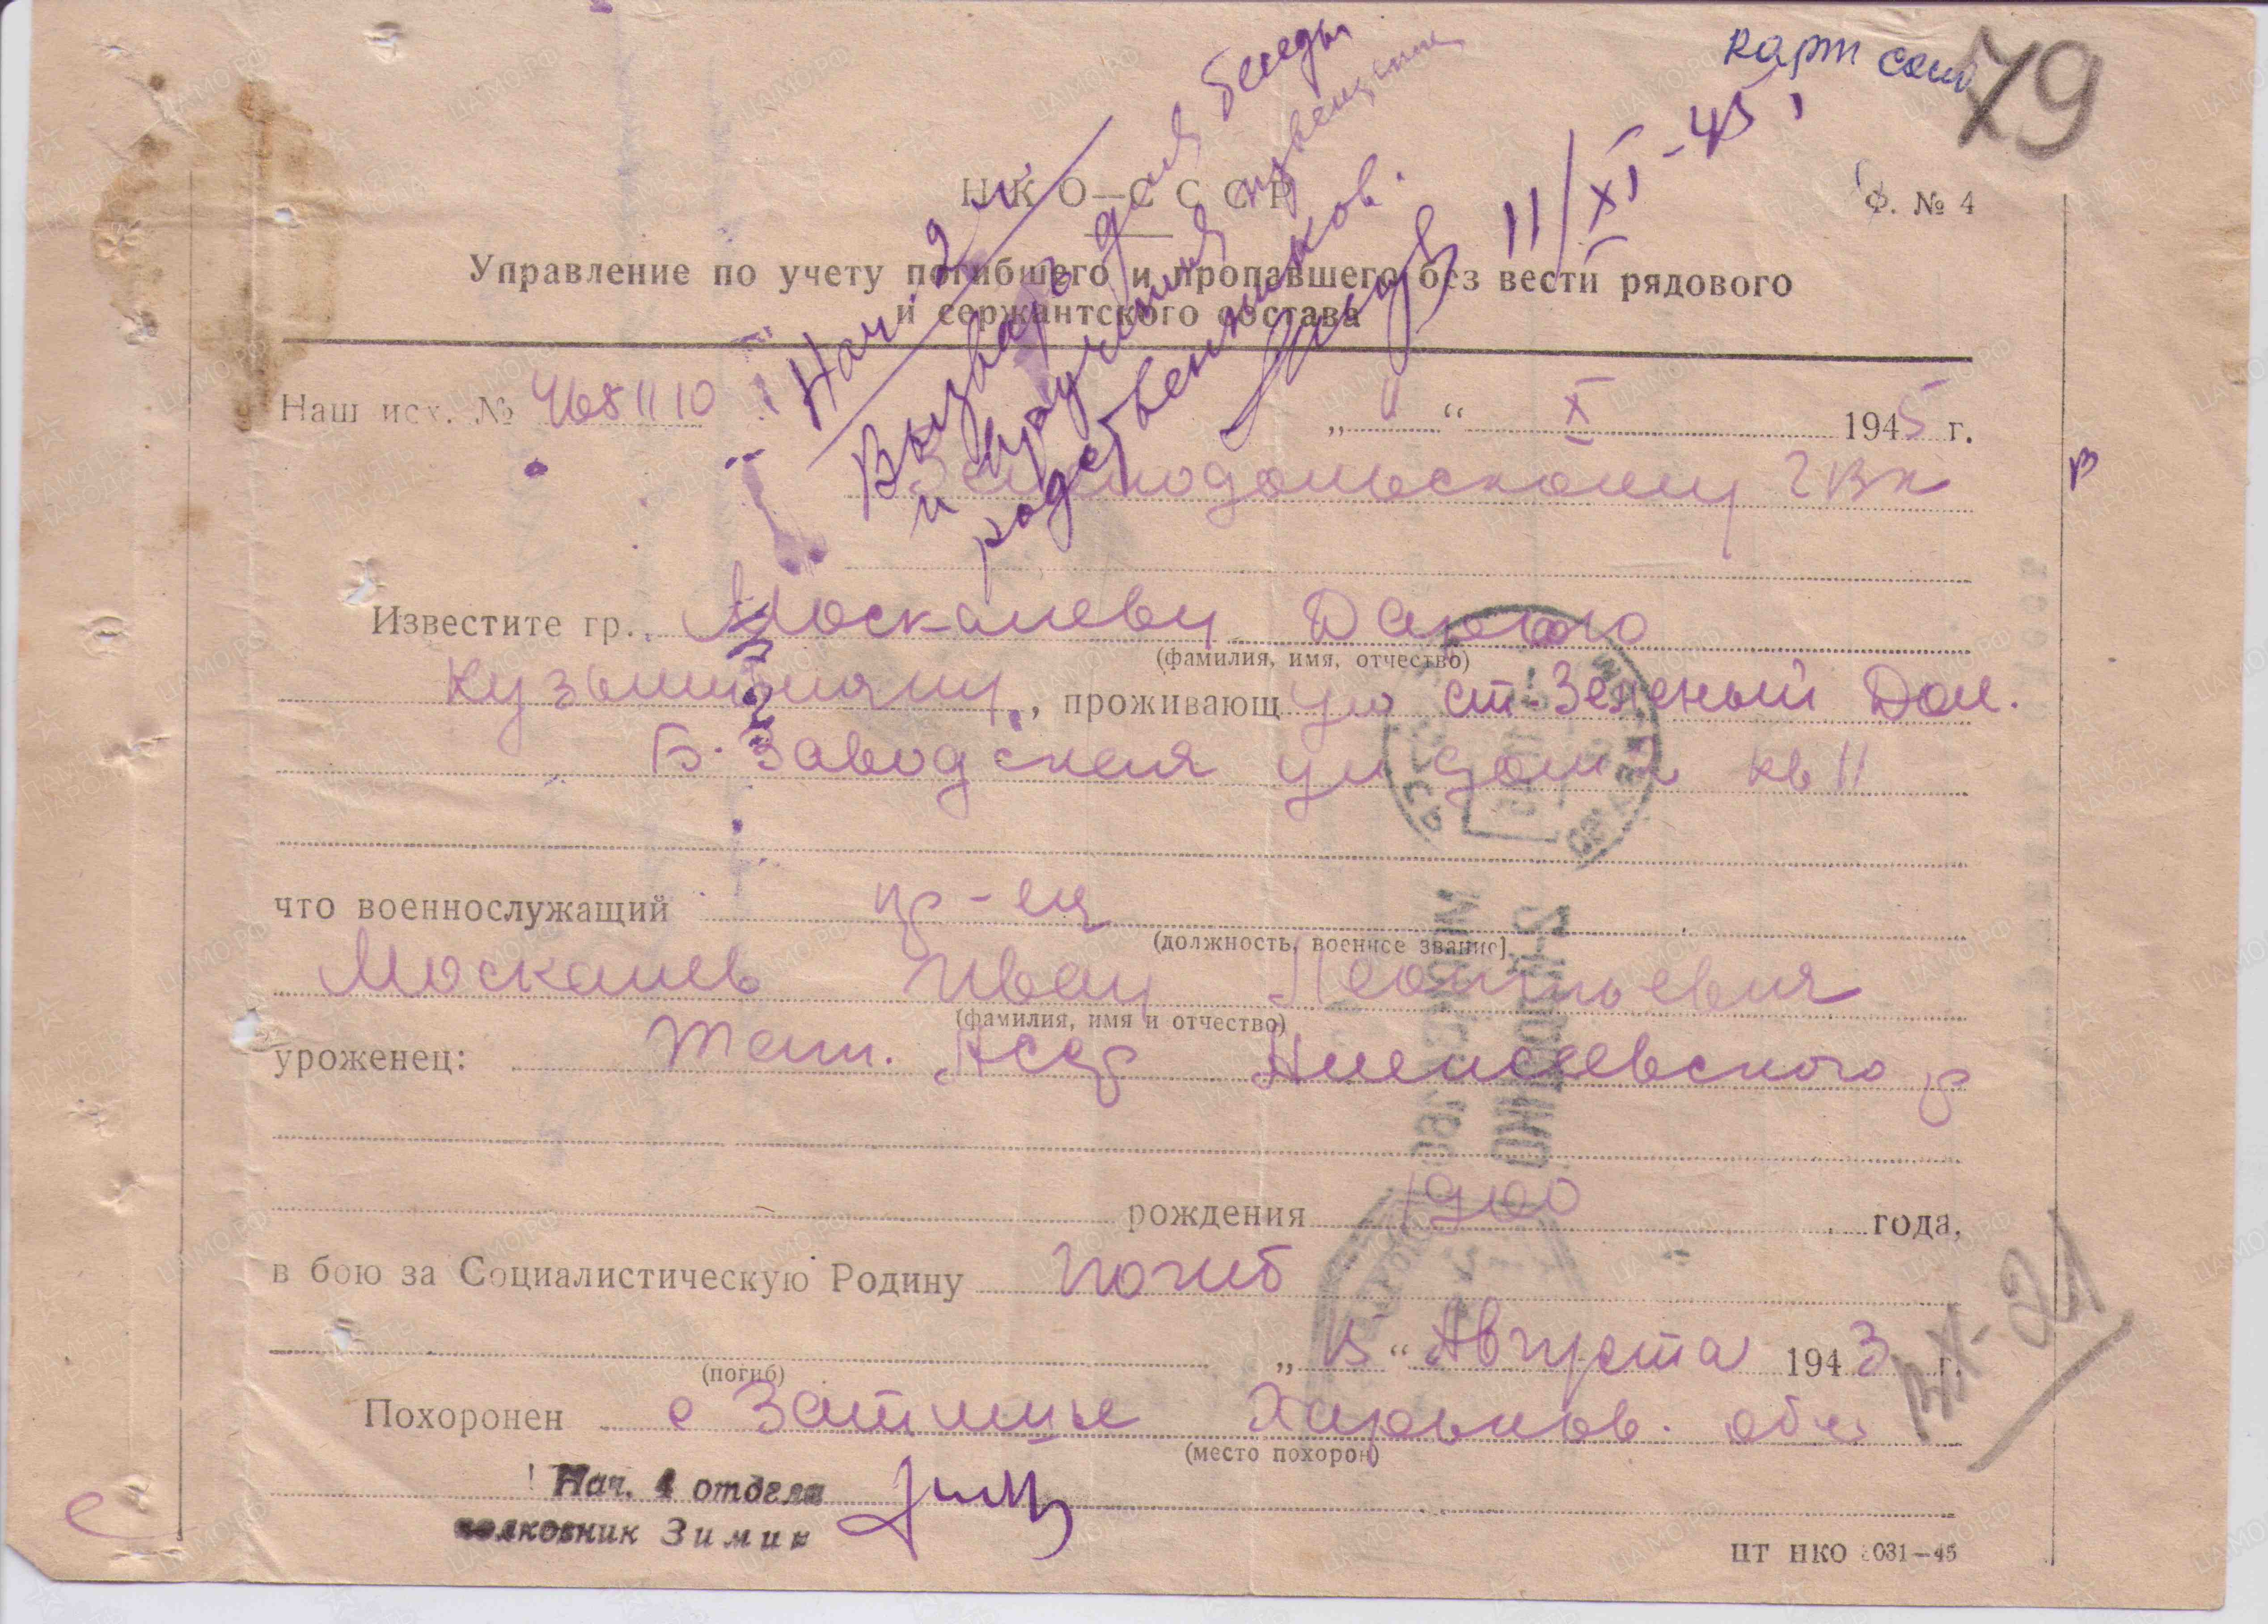 карт
79
НКО—СССР
Ф. № 4
Управление по учету погибшего и пропавшего без вести рядового
и сержантского состава
Нач. 2 ч.
Вызвать для беседы
и вручения извещения
родственников.
11/XI-45
Наш исх. № 4681110
„ “ X 1945 г.
Зеленодольскому ГВК
Известите гр. Москалеву Дарью
(фамилия, имя, отчество)
Кузьминичну, проживающую ст. Зеленый Дол.
Б. Заводская ул дом кв 11
что военнослужащий кр-ец
(должность, военное звание)
Москалев Иван Леонтьевич
(фамилия, имя и отчество)
уроженец: Тат. АССР Алексеевского р
рождения 1900 года,
в бою за Социалистическую Родину погиб
„15“ Августа 1943 г.
(погиб)
Похоронен с Затишье Харьков. обл
(место похорон)
Нач. 4 отдела
полковник Зимин
ЦТ НКО 031—45